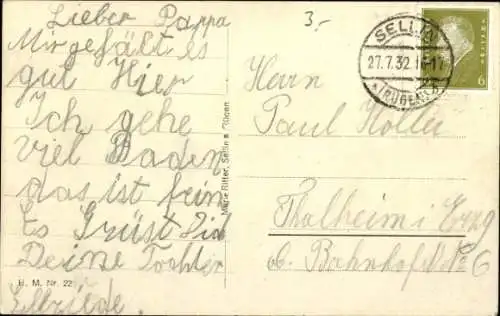 Lieber Pappa
Mir gefält es
gut Hier
Ich gehe
viel Baden
das ist fein
Es Grüst Dich
Deine Tochter
Elfriede.
H. M. Nr. 22
Marie Ritter, Sellin a. Rügen
3.-
SELLIN
27.7.32. 16-17
(RÜGEN)
6
Herrn
Paul
Thalheim i Erzg
Bahnhofst No 6